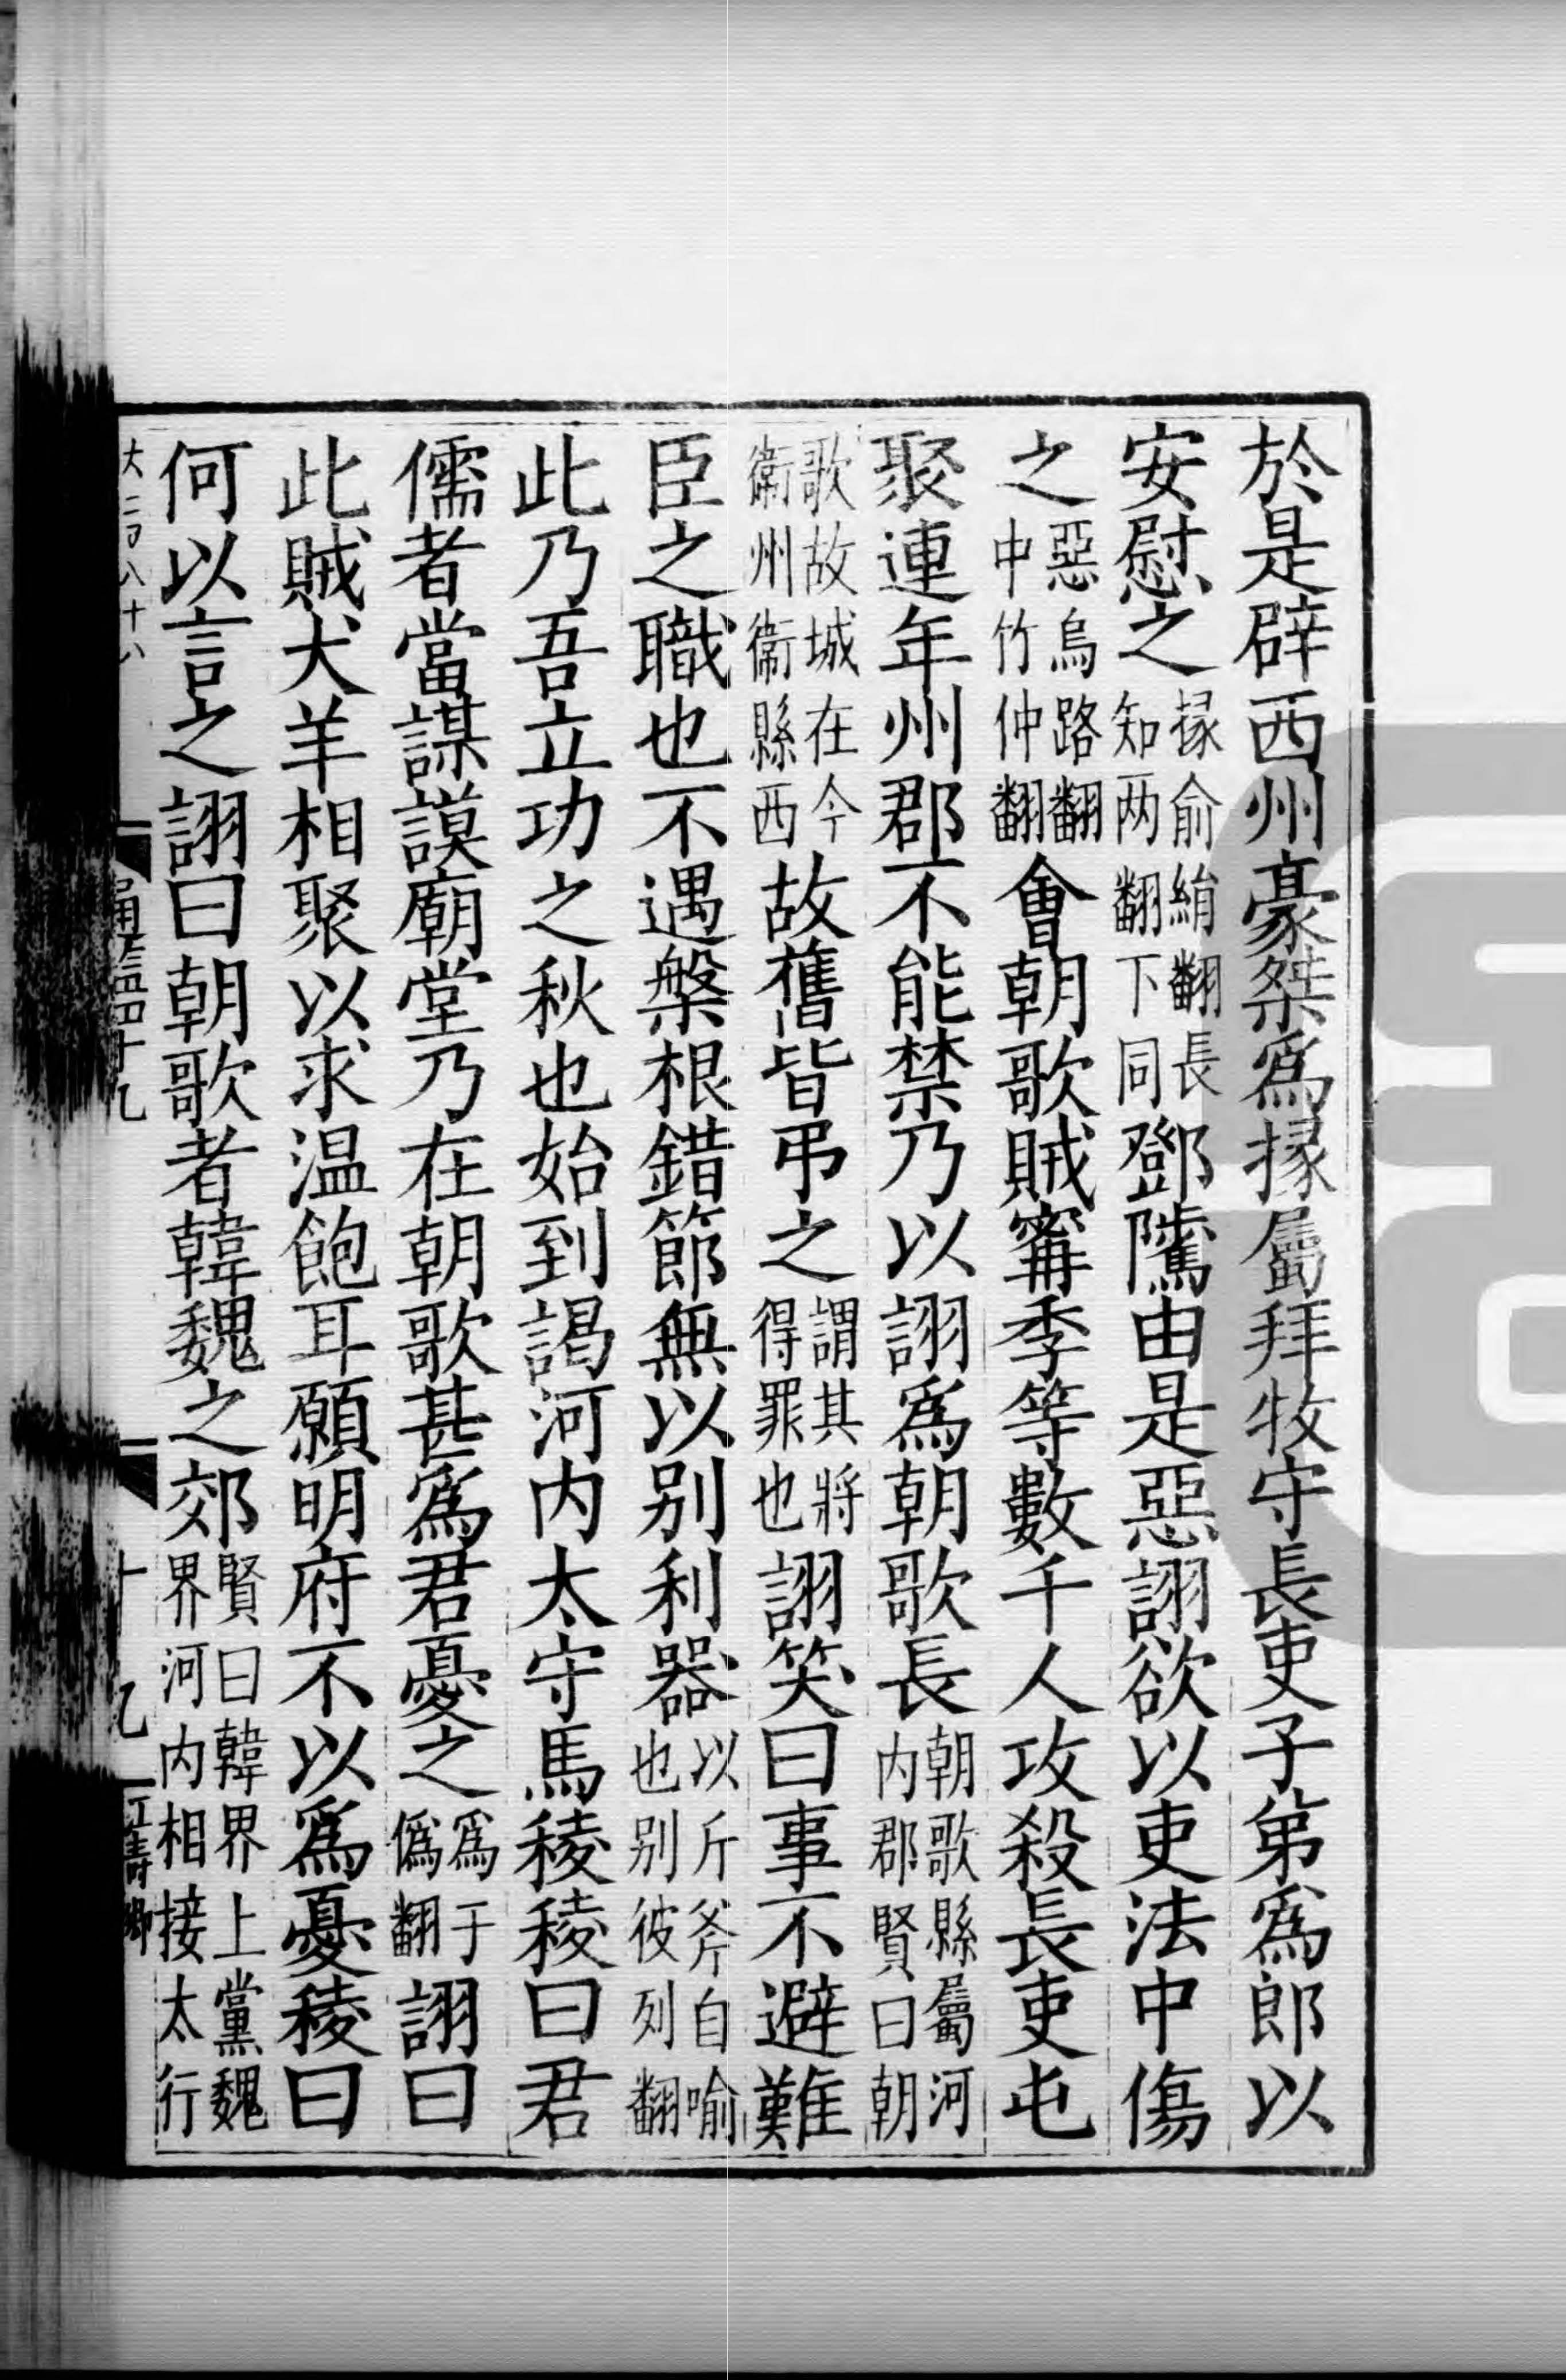 於是辟西州豪桀爲掾屬拜牧守長吏子弟爲郎以
安慰之掾俞絹翻長知两翻下同鄧騭由是惡詡欲以吏法中傷
之惡烏路翻中竹仲翻會朝歌賊甯季等數千人攻殺長吏屯
聚連年州郡不能禁乃以詡爲朝歌長朝歌縣屬河内郡賢曰朝
歌故城在今衞州衞縣西故舊皆弔之謂其將得罪也詡笑曰事不避難
臣之職也不遇槃根錯節無以别利器以斤斧自喻也别彼列翻
此乃吾立功之秋也始到謁河内太守馬稜稜曰君
儒者當謀謨廟堂乃在朝歌甚爲君憂之爲于僞翻詡曰
此賊犬羊相聚以求温飽耳願明府不以爲憂稜曰
何以言之詡曰朝歌者韓魏之郊賢曰韓界上黨魏界河内相接太行
大二百八十八
通鑑四十九
十九
江壽卿